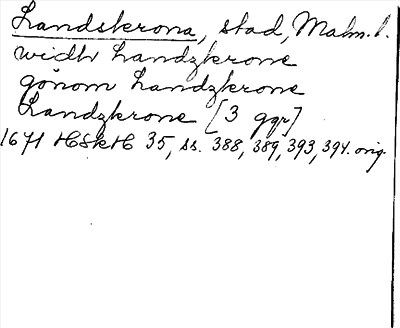 Landskrona, stad, Malm. l.
widh Landzkrone
gönom Landzkrone
Landzkrone [3 ggr]
1671 HSkH 35, ss. 388, 389, 393, 394. orig.